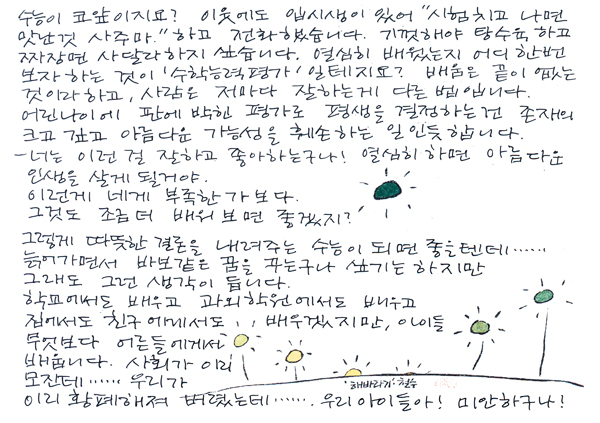 수능이 코앞이지요? 이웃에도 입시생이 있어 "시험치고 나면
맛난것 사주마." 하고 전화했습니다. 기껏해야 탕수육하고
짜장면 사달라하지 싶습니다. 열심히 배웠는지 어디 한번
보자 하는 것이 '수학능력평가' 일테지요? 배움은 끝이 없는
것이라 하고, 사람은 저마다 잘하는게 다른 법입니다.
어린나이에 판에 박힌 평가로 평생을 결정하는건 존재의
크고 깊고 아름다운 가능성을 훼손하는 일인듯 합니다.
-너는 이런걸 잘하고 좋아하는구나! 열심히하면 아름다운
인생을 살게 될거야.
이런게 네게 부족한가보다.
그것도 조금 더 배워보면 좋겠지?
그렇게 따뜻한 결론을 내려주는 수능이 되면 좋을텐데……
늙어가면서 바보같은 꿈을 꾸는구나 싶기는 하지만
그래도 그런 생각이 듭니다.
학교에서도 배우고 과외학원에서도 배우고
집에서도 친구에게서도 배우겠지만, 아이들
무엇보다 어른들에게서
배웁니다. 사회가 이리
모잔테…… 우리가
'해바라기' 철수
이리 황폐해져 버렸는데……. 우리 아이들아! 미안하구나!